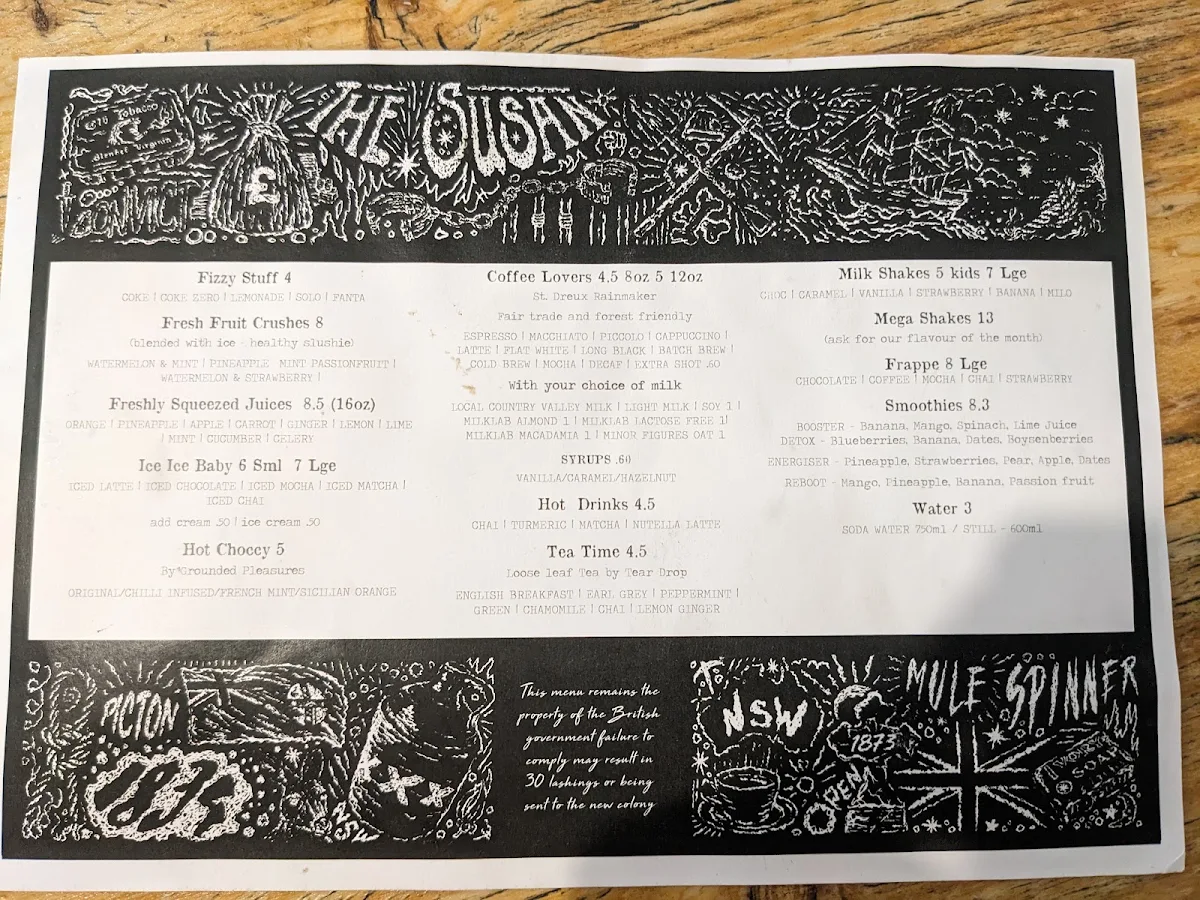 1878 Tobacco
Blended Virginia
CONVICT
£
THE SUSAN
Fizzy Stuff 4
COKE | COKE ZERO | LEMONADE | SOLO | FANTA
Fresh Fruit Crushes 8
(blended with ice - healthy slushie)
WATERMELON & MINT | PINEAPPLE MINT PASSIONFRUIT |
WATERMELON & STRAWBERRY |
Freshly Squeezed Juices 8.5 (16oz)
ORANGE | PINEAPPLE | APPLE | CARROT | GINGER | LEMON | LIME
| MINT | CUCUMBER | CELERY
Ice Ice Baby 6 Sml 7 Lge
ICED LATTE | ICED CHOCOLATE | ICED MOCHA | ICED MATCHA |
ICED CHAI
add cream .50 | ice cream .50
Hot Choccy 5
By Grounded Pleasures
ORIGINAL/CHILLI INFUSED/FRENCH MINT/SICILIAN ORANGE
Coffee Lovers 4.5 8oz 5 12oz
St. Dreux Rainmaker
Fair trade and forest friendly
ESPRESSO | MACCHIATO | PICCOLO | CAPPUCCINO |
LATTE | FLAT WHITE | LONG BLACK | BATCH BREW |
COLD BREW | MOCHA | DECAF | EXTRA SHOT .60
With your choice of milk
LOCAL COUNTRY VALLEY MILK | LIGHT MILK | SOY 1 |
MILKLAB ALMOND 1 | MILKLAB LACTOSE FREE 1|
MILKLAB MACADAMIA 1 | MINOR FIGURES OAT 1
SYRUPS .60
VANILLA/CARAMEL/HAZELNUT
Hot Drinks 4.5
CHAI | TURMERIC | MATCHA | NUTELLA LATTE
Tea Time 4.5
Loose leaf Tea by Tear Drop
ENGLISH BREAKFAST | EARL GREY | PEPPERMINT |
GREEN | CHAMOMILE | CHAI | LEMON GINGER
Milk Shakes 5 kids 7 Lge
CHOC | CARAMEL | VANILLA | STRAWBERRY | BANANA | MILO
Mega Shakes 13
(ask for our flavour of the month)
Frappe 8 Lge
CHOCOLATE | COFFEE | MOCHA | CHAI | STRAWBERRY
Smoothies 8.3
BOOSTER - Banana, Mango, Spinach, Lime Juice
DETOX - Blueberries, Banana, Dates, Boysenberries
ENERGISER - Pineapple, Strawberries, Pear, Apple, Dates
REBOOT - Mango, Pineapple, Banana, Passion fruit
Water 3
SODA WATER 750ml / STILL - 600ml
PICTON
1873
NSW
This menu remains the
property of the British
government failure to
comply may result in
30 lashings or being
sent to the new colony
NSW
1873
OPEN
MULE SPINNER
SOAP